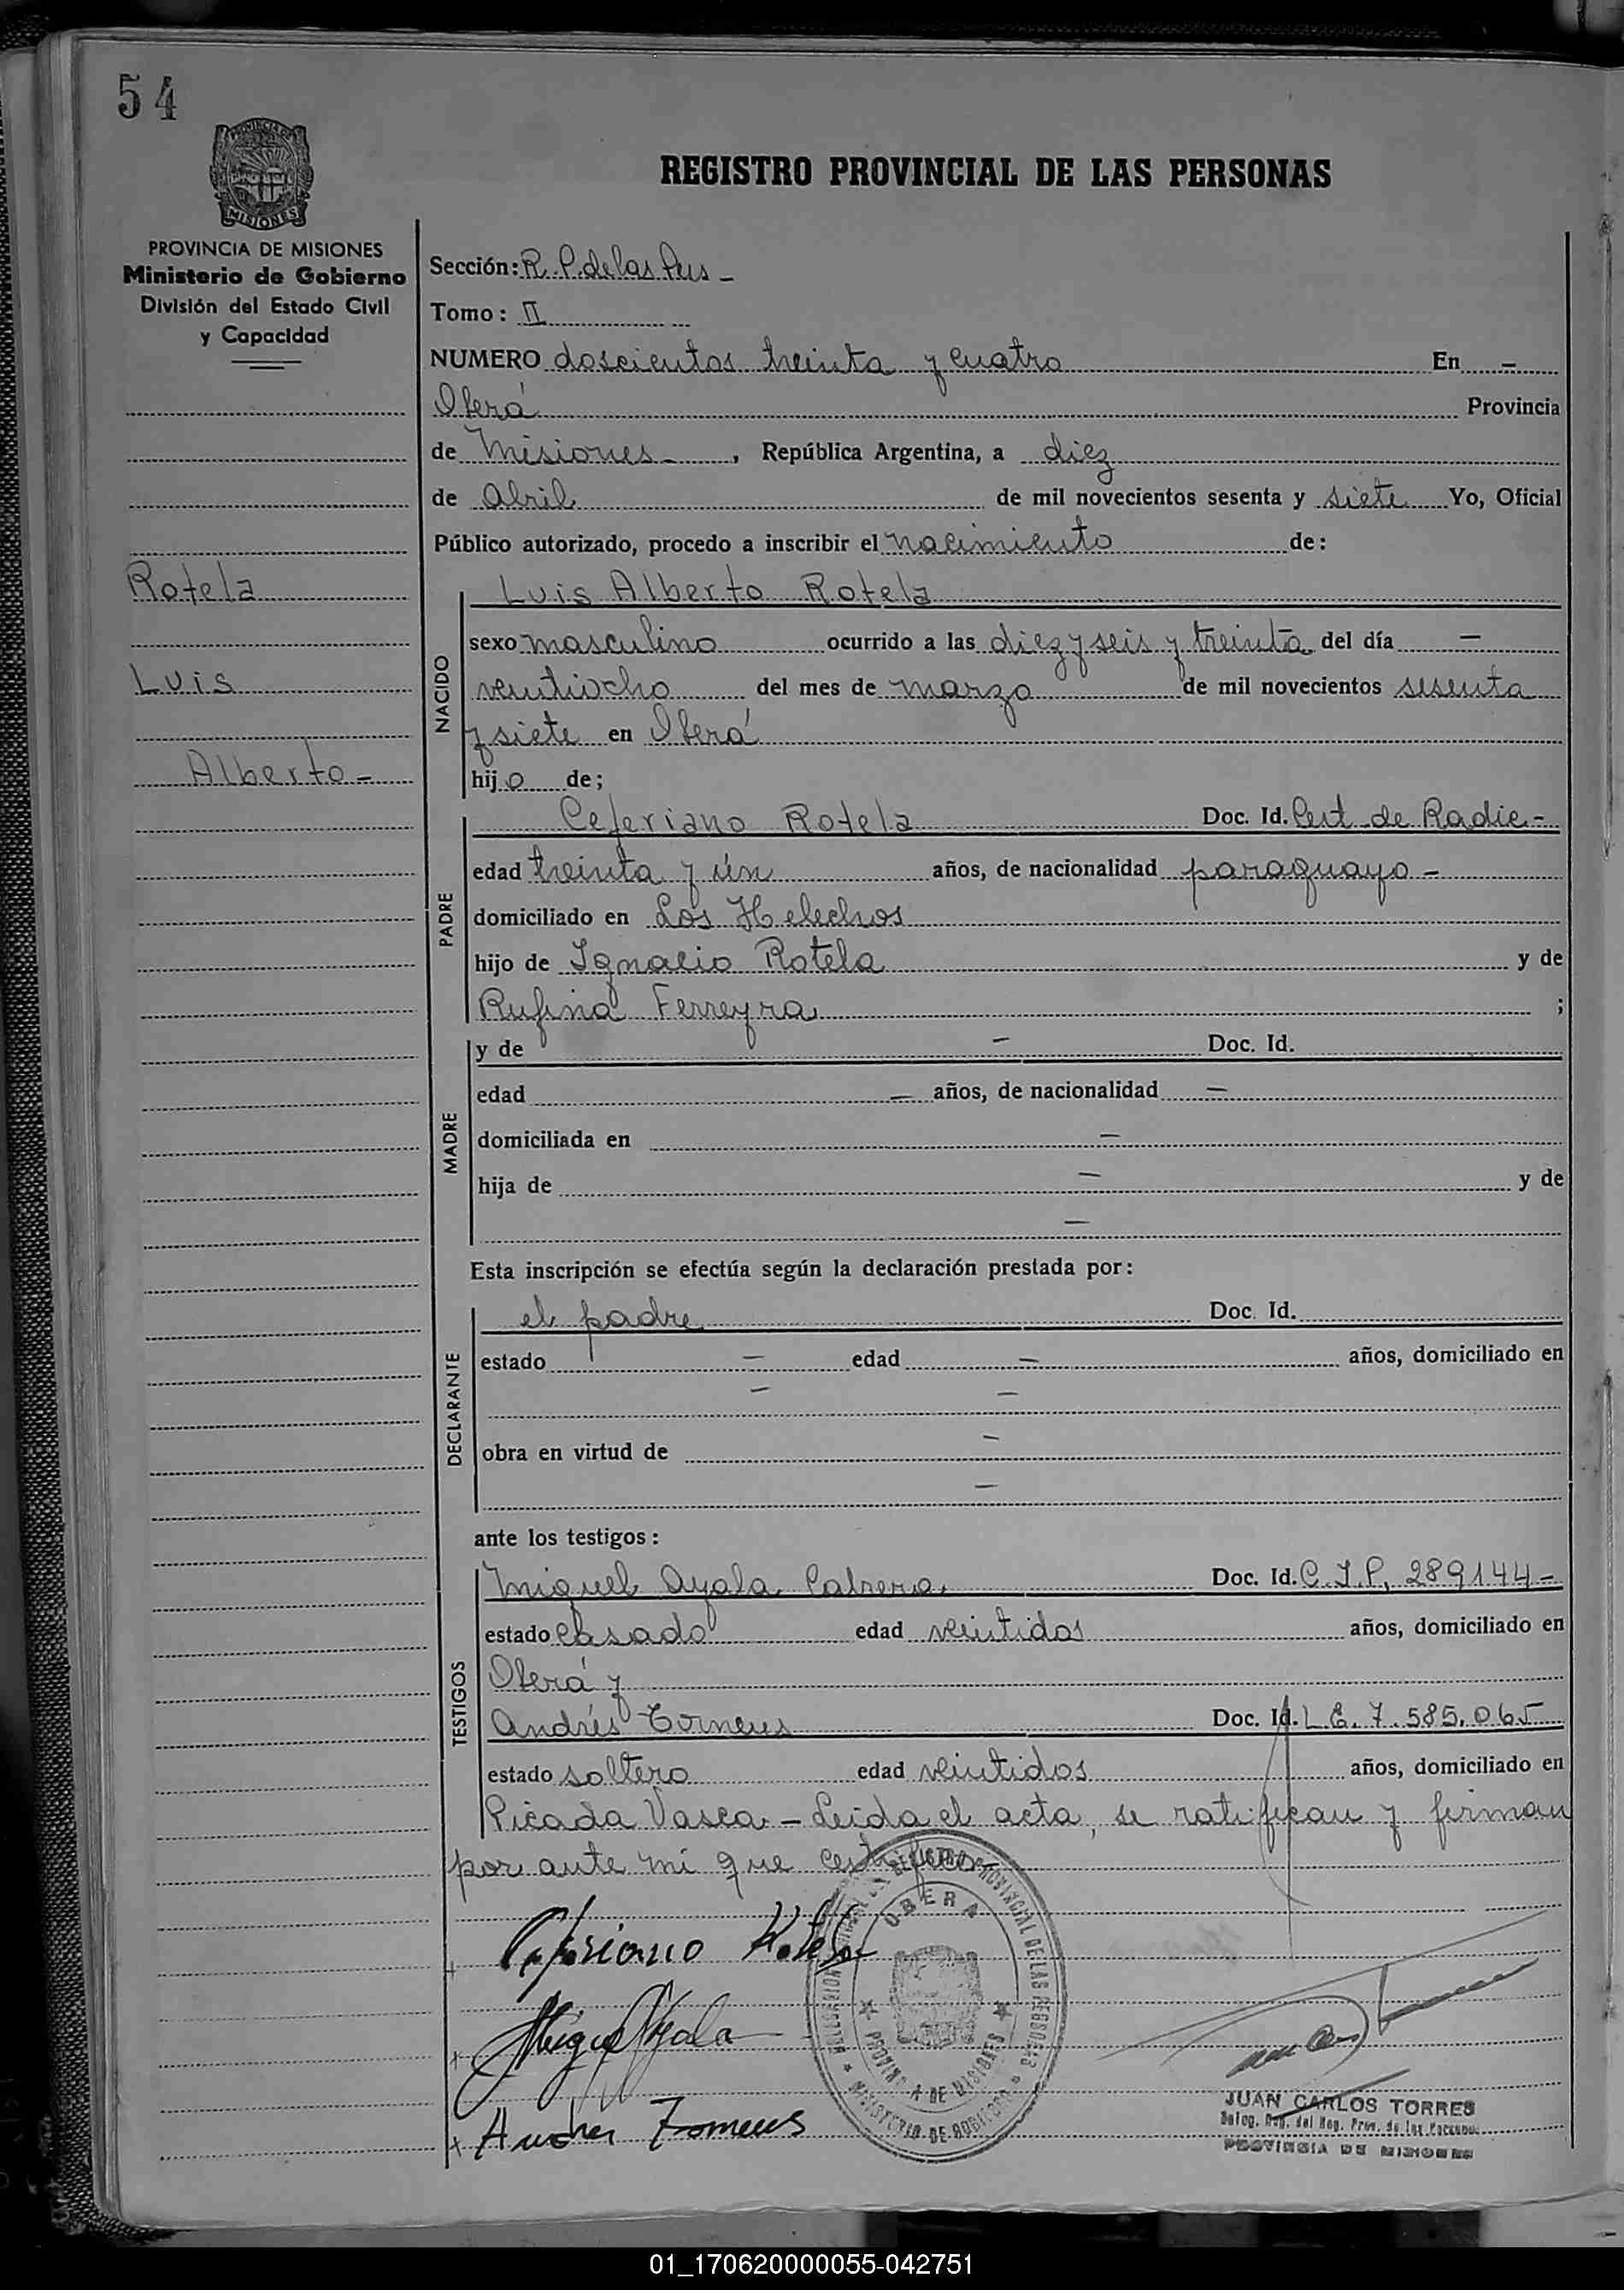 54
PROVINCIA DE MISIONES
Ministerio de Gobierno
División del Estado Civil
y Capacidad
Rotela
Luis
Alberto -
REGISTRO PROVINCIAL DE LAS PERSONAS
Sección: R. P. de las Pers -
Tomo: II
NUMERO doscientos treinta y cuatro En -
Oberá Provincia
de Misiones - , República Argentina, a diez
de Abril de mil novecientos sesenta y siete Yo, Oficial
Público autorizado, procedo a inscribir el nacimiento de:
NACIDO
Luis Alberto Rotela
sexo masculino ocurrido a las diez y seis y treinta del día -
veintiocho del mes de marzo de mil novecientos sesenta
y siete en Oberá
hijo de;
PADRE
Ceferiano Rotela Doc. Id. Cert de Radic -
edad treinta y ún años, de nacionalidad paraguayo -
domiciliado en Los Helechos
hijo de Ignacio Rotela y de
Rufina Ferreyra ;
MADRE
y de - Doc. Id.
edad - años, de nacionalidad -
domiciliada en -
hija de - y de
-
Esta inscripción se efectúa según la declaración prestada por:
DECLARANTE
el padre Doc. Id.
estado - edad - años, domiciliado en
- -
obra en virtud de -
-
ante los testigos:
TESTIGOS
Miguel Ayala Cabrera Doc. Id. C.I.P. 289144 -
estado casado edad veintidos años, domiciliado en
Oberá y
Andrés Doc. Id. L.E. 7.585.065
estado soltero edad veintidos años, domiciliado en
Picada Vasca - Leida el acta, se ratifican y firman
por ante mí que certifico -
Ceferiano Rotela
Miguel Ayala
OBERA
PROVINCIA DE MISIONES
MINISTERIO DE GOBIERNO
REGISTRO PROVINCIAL DE LAS PERSONAS
JUAN CARLOS TORRES
PROVINCIA DE MISIONES
01_170620000055-042751